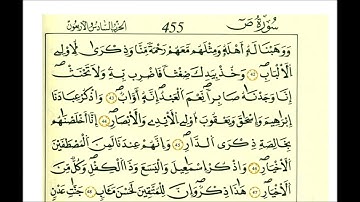 سُورَةُ صٓ 455 الحزب السادس والأربعون
وَوَهَبْنَا لَهُۥٓ أَهْلَهُۥ وَمِثْلَهُم مَّعَهُمْ رَحْمَةً مِّنَّا وَذِكْرَىٰ لِأُوْلِي
اِ۬لْأَلْبَٰبِ وَخُذْ بِيَدِكَ ضِغْثاً فَاضْرِب بِّهِۦ وَلَا تَحْنَثْ
إِنَّا وَجَدْنَٰهُ صَابِراً نِّعْمَ اَ۬لْعَبْدُ إِنَّهُۥٓ أَوَّابٌ وَاذْكُرْ عِبَٰدَنَآ
إِبْرَٰهِيمَ وَإِسْحَٰقَ وَيَعْقُوبَ أُوْلِي اِ۬لْأَيْدِي وَالْأَبْصَٰرِ إِنَّآ أَخْلَصْنَٰهُم
بِخَالِصَةِ ذِكْرَى اَ۬لدَّارِ وَإِنَّهُمْ عِندَنَا لَمِنَ اَ۬لْمُصْطَفَيْنَ
اَ۬لْأَخْيَارِ وَاذْكُرِ اِسْمَٰعِيلَ وَالْيَسَعَ وَذَا اَ۬لْكِفْلِ وَكُلٌّ مِّنَ
اَ۬لْأَخْيَارِ هَٰذَا ذِكْرٌ وَإِنَّ لِلْمُتَّقِينَ لَحُسْنَ مَـَٔابٍ جَنَّٰتِ عَدْنٍ